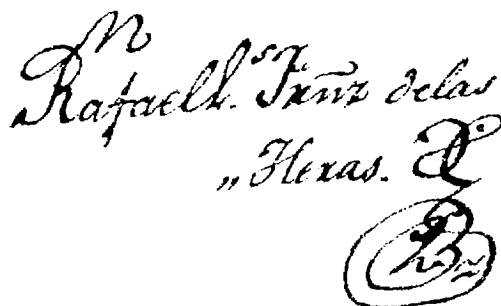 Rafael Frñz delas
„Heras.